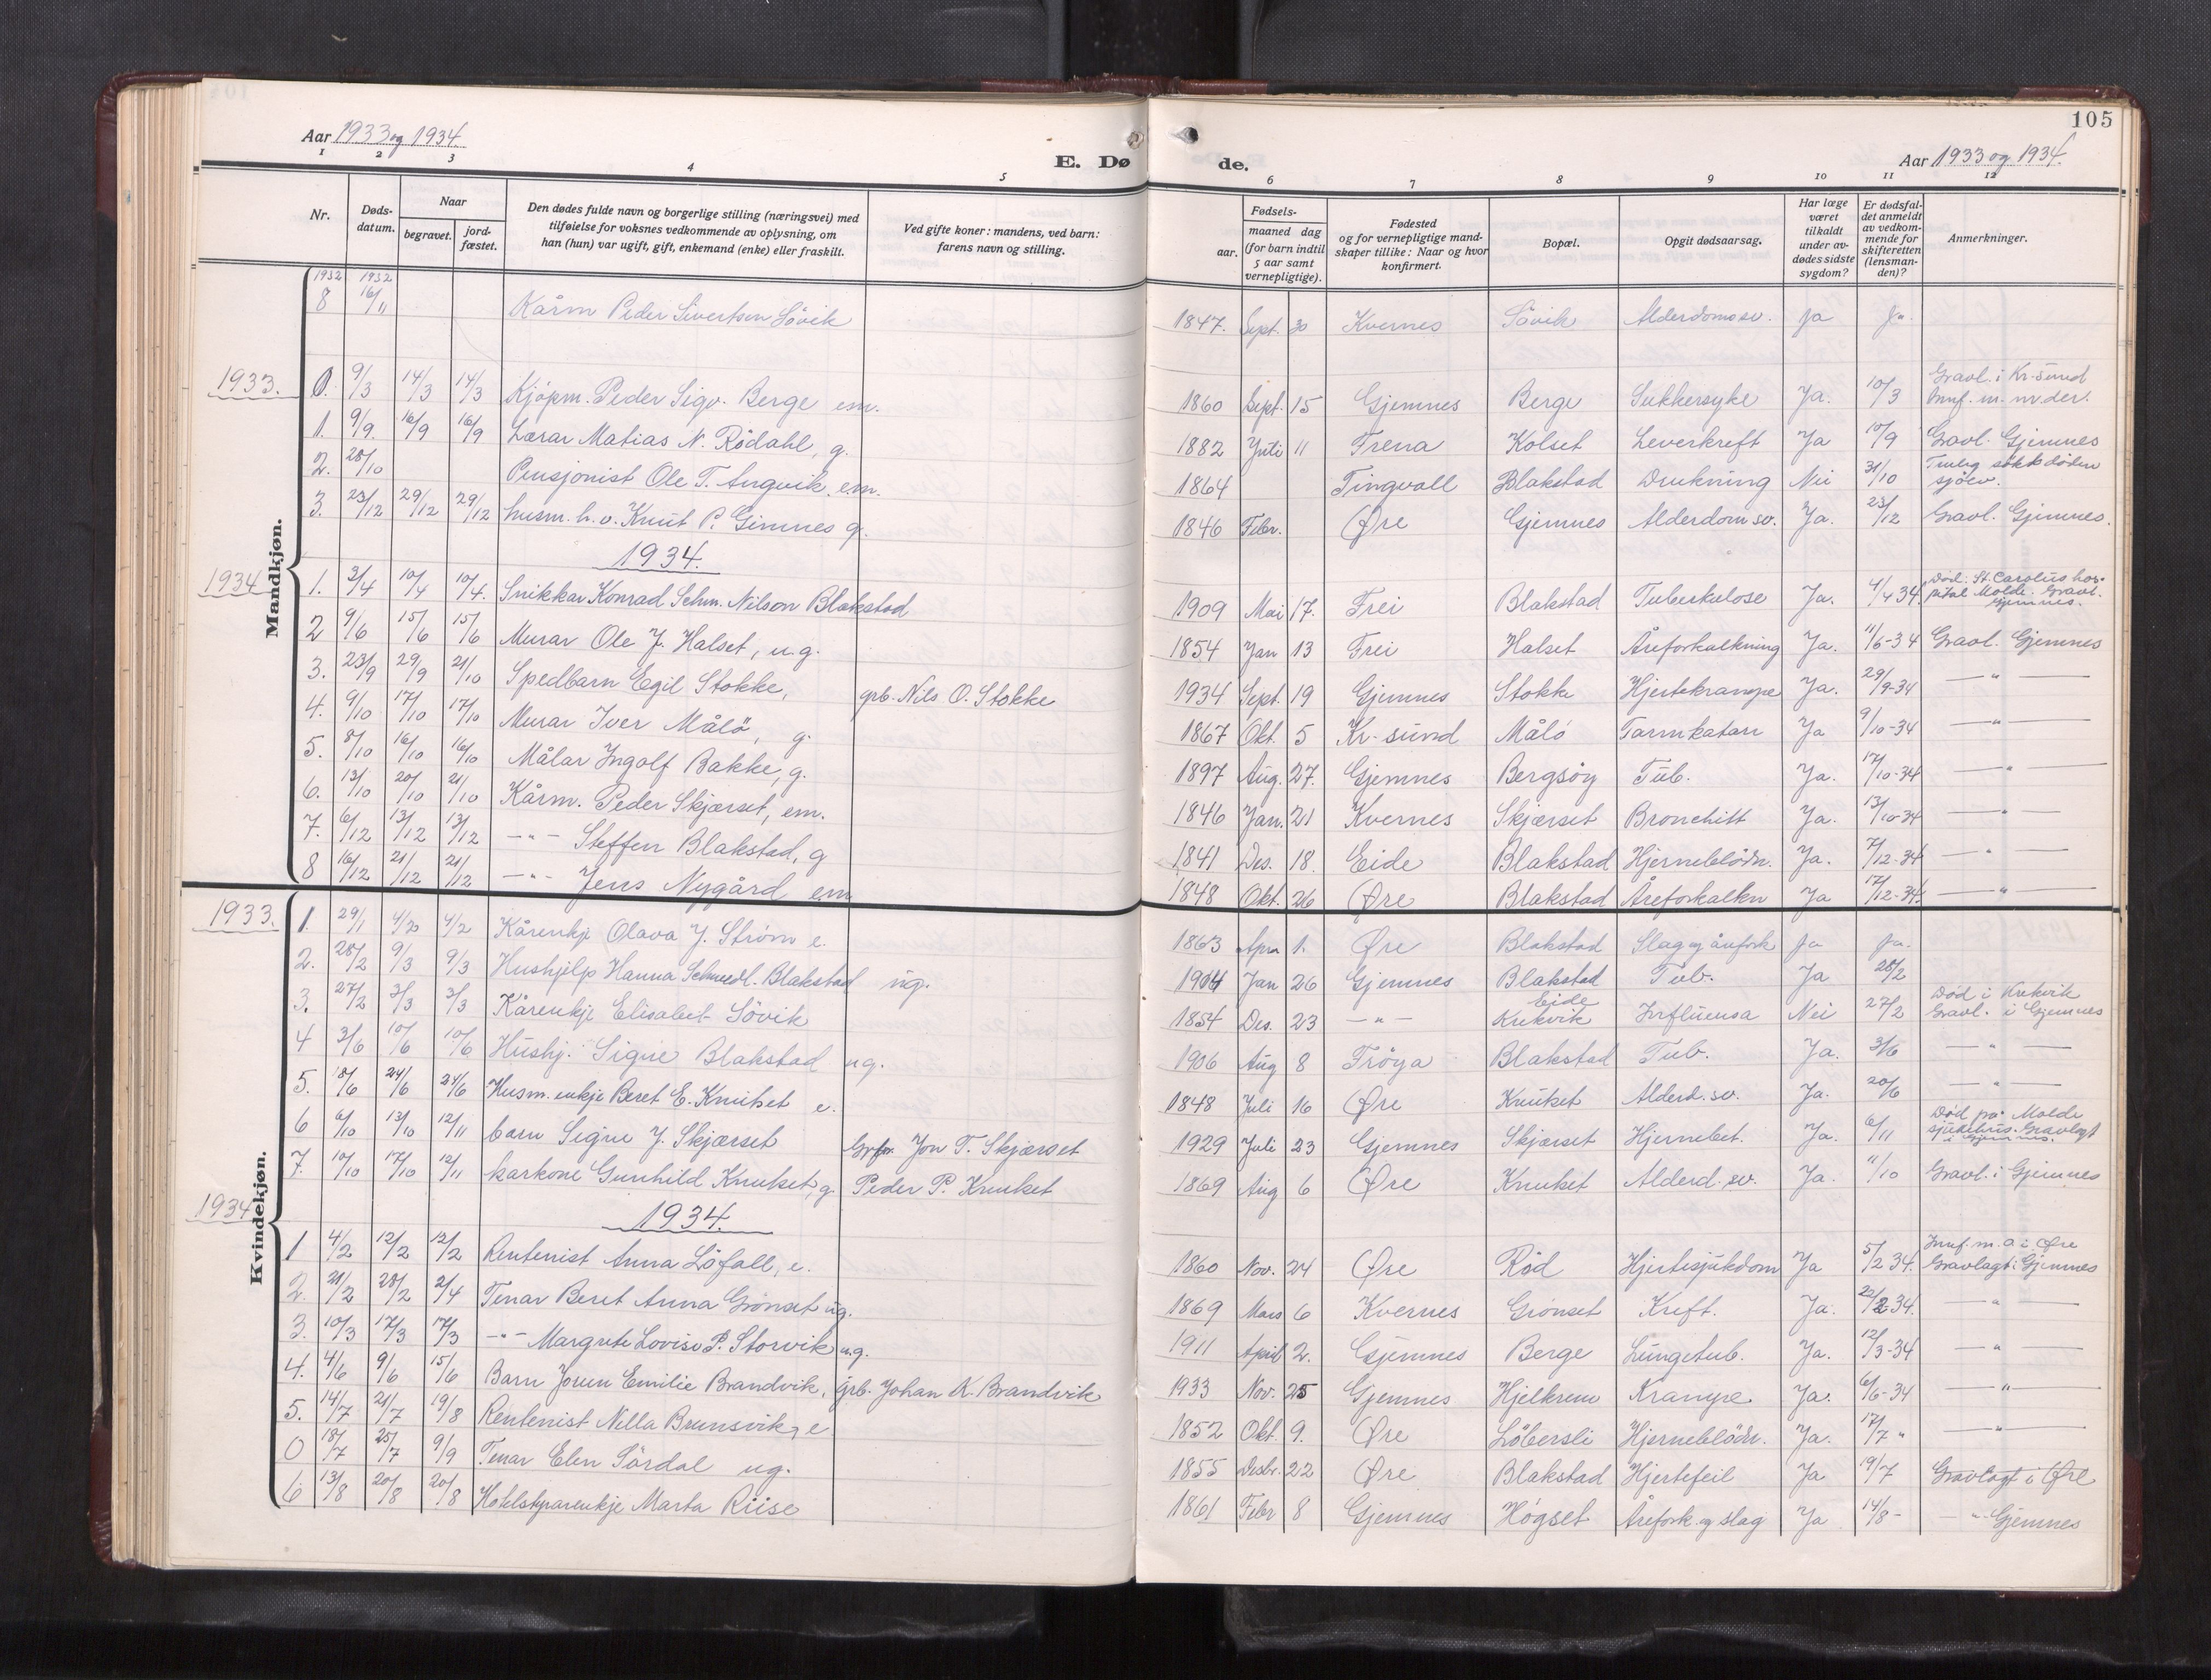 105
Aar 1933 og 1934. E. Døde. Aar 1933 og 1934.
1 2 3 4 5 6 7 8 9 10 11 12
Nr. Dødsdatum. Naar begravet. jordfæstet. Den dødes fulde navn og borgerlige stilling (næringsvei) med tilføielse for voksnes vedkommende av oplysning, om han (hun) var ugift, gift, enkemand (enke) eller fraskilt. Ved gifte koner: mandens, ved barn: farens navn og stilling. Fødsels- aar. maaned dag (for barn indtil 5 aar samt vernepligtige). Fødested og for vernepligtige mandskaper tillike: Naar og hvor konfirmert. Bopæl. Opgit dødsaarsag. Har læge været tilkaldt under avdødes sidste sygdom? Er dødsfaldet anmeldt av vedkommende for skifteretten (lensmanden)? Anmerkninger.
Mandkjøn.
1932 1932
8 16/11 Kårm Peder Sivertsen Søvik 1847. Sept. 30 Kvernes Søvik Alderdomssv. Ja Ja.
1933.
0. 9/3 14/3 14/3 Kjøpm. Peder Sigv. Berge em. 1860 Sept. 15 Gjemnes Berge Sukkersyke Ja. 10/3 Gravl. i Kr-sund
1. 9/9. 16/9 16/9 Lærar Matias N. Rødahl, g. 1882 Juli 11 Frena Kolset Leverkreft Ja 10/9 Gravl. Gjemnes
2. 28/10 Pensjonist Ole T. Angvik, em. 1864 Tingvoll Blakstad Drukning Nei 31/10 døden sjølv.
3. 23/12 29/12 29/12 husm. h.v. Knut P. Gimnes g. 1846 Febr. Øre Gjemnes Alderdom sv. Ja. 23/12 Gravl. Gjemnes.
1934.
1934
1. 3/4 10/4 10/4. Snikkar Konrad Schm. Nilson Blakstad 1909 Mai 17. Frei Blakstad Tuberkulose Ja. 4/4 34. Død. St. Carolus hospital Molde. Gravl. Gjemnes.
2 9/6 15/6 15/6 Murar Ole J. Halset, u.g. 1854 Jan 13 Frei Halset Åreforkalkning Ja. 11/6-34 Gravl. Gjemnes
3. 23/9 29/9 21/10 Spedbarn Egil Stokke, grb. Nils O. Stokke 1934 Sept. 19 Gjemnes Stokke Hjertekrampe Ja. 29/9-34 — " —
4. 9/10 17/10 17/10 Murar Iver Målö, g. 1867 Okt. 5 Kr-sund Målö Tarmkatarr Ja 9/10-34 — " —
5. 8/10 16/10 16/10 Målar Ingolf Bakke, g. 1897 Aug. 27. Gjemnes Bergsöy Tub. Ja. 17/10-34 — " —
6. 13/10 20/10 21/10 Kårm. Peder Skjærset, em. 1846 Jan. 21 Kvernes Skjærset Bronchitt Ja. 13/10-34 — " —
7. 6/12 13/12 13/12 — " — Steffen Blakstad, g 1841 Des. 18. Eide Blakstad Hjerneblødn. Ja. 7/12-34 — " —
8 16/12 21/12 21/12 — " — Jens Nygård em 1848 Okt. 26 Øre Blakstad Åreforkalkn Ja 17/12-34. — " —
Kvindekjøn.
1933.
1. 29/1 4/2 4/2 Kårenkje Olava J. Strøm e. 1863 Apr. 1. Øre Blakstad Slag og årefork Ja Ja.
2. 28/2 9/3 9/3 Hushjelp Hanna Schmedl. Blakstad ug. 1904 Jan 26 Gjemnes Blakstad Tub. Ja 28/2
3. 27/2 3/3 3/3 Kårenkje Elisabet Søvik 1854 Des. 23 — " — Eide Krekvik Influensa Nei 27/2 Død i Krekvik Gravl. i Gjemnes
4 3/6 10/6 10/6 Hushj. Signe Blakstad ug. 1906 Aug 8 Frøya Blakstad Tub. Ja. 3/6 — " —
5. 18/6 24/6 24/6 Husm. enkje Beret E. Knutset e. 1848 Juli 16 Øre Knutset Alderd. sv. Ja. 20/6 — " —
6 6/10 13/10 12/11 barn Signe J. Skjærset Jon T. Skjærset 1929 Juli 23 Gjemnes Skjærset Hjernebet. Ja. 6/11 Død på Molde sjukehus. Gravlagt i Gjemnes.
7. 10/10 17/10 12/11 karkone Gunhild Knutset, g. Peder P. Knutset 1869 Aug 6 Øre Knutset Alderd. sv. Ja. 11/10 Gravl. i Gjemnes
1934.
1934
1 4/2 12/2 12/2 Rentenist Anna Löfall, e. 1860 Nov. 24 Øre Rød Hjertesjukdom Ja 5/2 34. Gravlagt i Gjemnes
2. 21/2 28/2 2/4 Tenar Beret Anna Grönset ug. 1869 Mars 6 Kvernes Grönset Kreft. Ja. 22/2-34. — " —
3. 10/3 17/3 17/3 — " — Margrete Lovise P. Storvik u.g. 1911 April 2. Gjemnes Berge Lungetub. Ja. 12/3-34 — " —
4. 4/6 9/6 15/6 Barn Jorun Emilie Brandvik, grb. Johan K. Brandvik 1933 Nov. 25 Gjemnes Hjelkrem Krampe. Ja. 6/6-34 — " —
5. 14/7 21/7 19/8 Rentenist Nella Brunsvik, e 1852 Okt. 9. Øre Löbersli Hjerneblödn. Ja. 17/7 " — " —
0 18/7 25/7 9/9 Tenar Elen Sördal ug. 1855 Desbr. 22 Øre Blakstad Hjertefeil Ja 19/7 Gravlagt i Øre
6 13/8 20/8 20/8 Hotelstyrarenkje Marta Riise 1861 Febr 8 Gjemnes Högset Årefork. og slag Ja 14/8 - — " — Gjemnes